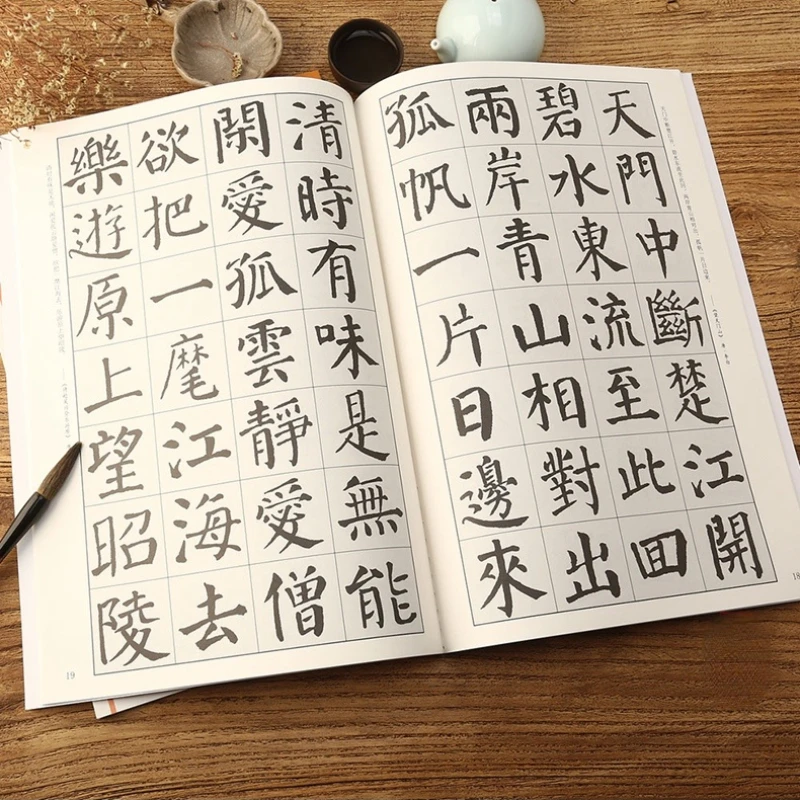 天門中斷楚江開
碧水東流至此囬
兩岸青山相對出
孤帆一片日邊來
18
清時有味是無能
閑愛孤雲靜愛僧
欲把一麾江海去
樂遊原上望昭陵
19